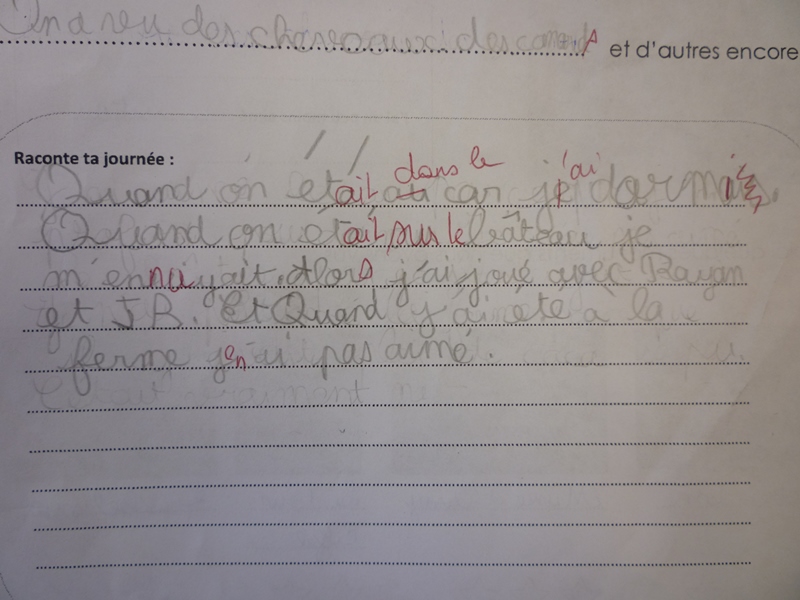 On a vu des chevaux des et d'autres encore
Raconte ta journée :
dans le j'ai
Quand on etait au car je dormi
Quand on etait sur le bâteau je
m'ennuiyait. Alors j'ai joué avec Rayan
et J R. Et Quand j'ai été à la
ferme j'en ai pas aimé.